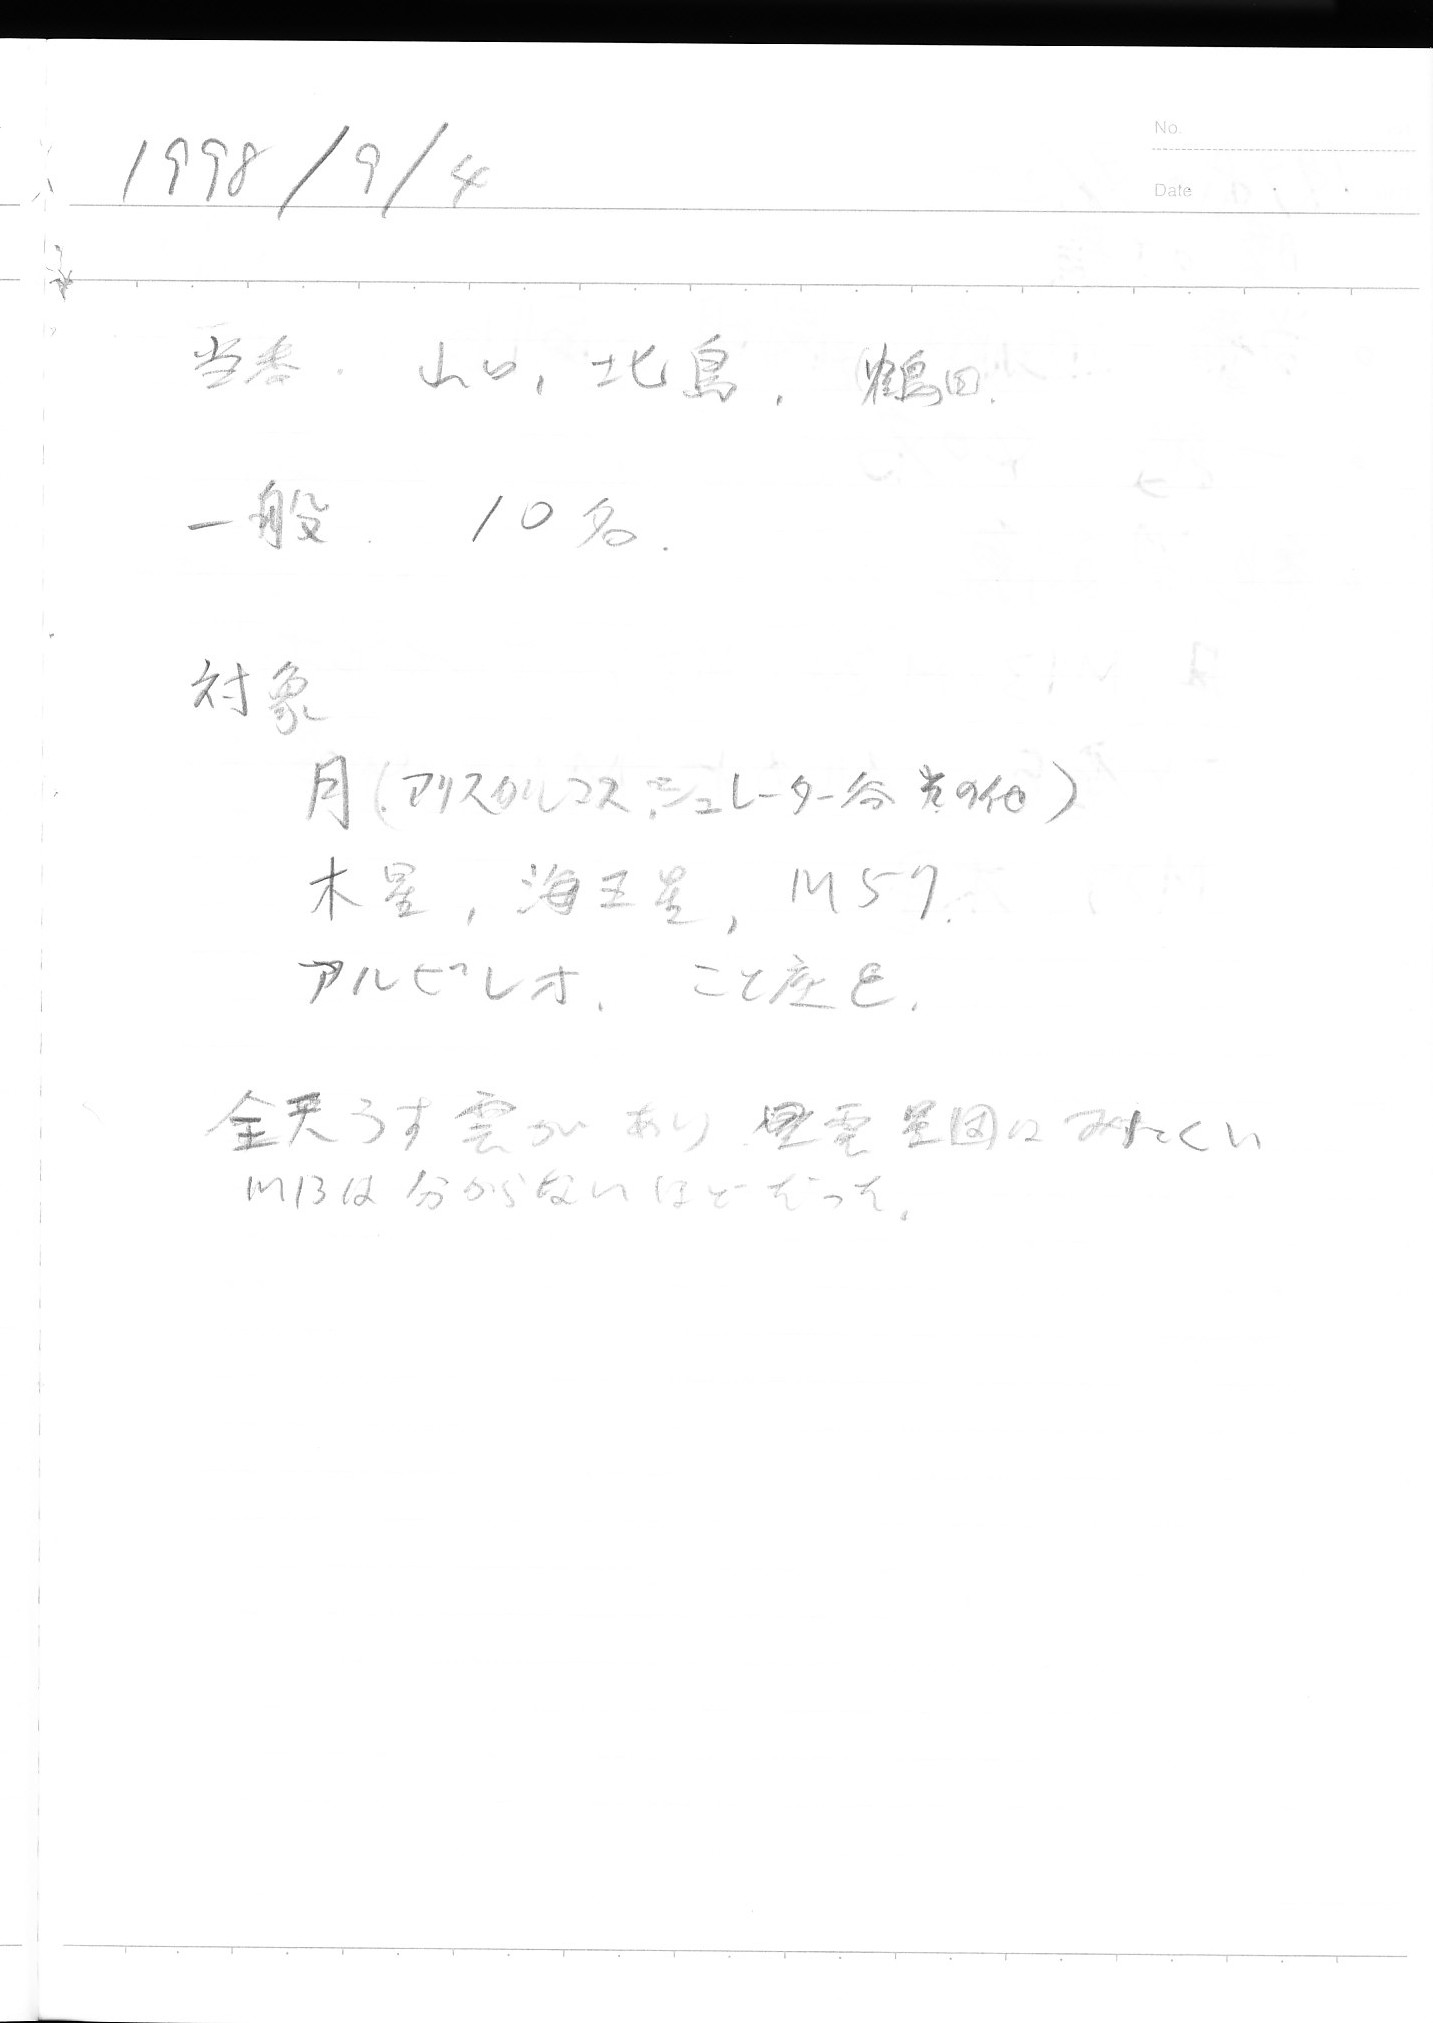 No.
1998/9/4
Date
当番. 山口, 北島, 鶴田.
一般. 10名.
対象
月(アリスタルコス,シュレーター谷 その他)
木星, 海王星, M57.
アルビレオ. こと座ε.
全天うす雲があり 星雲星団はみにくい
M13は分からないほどだった.